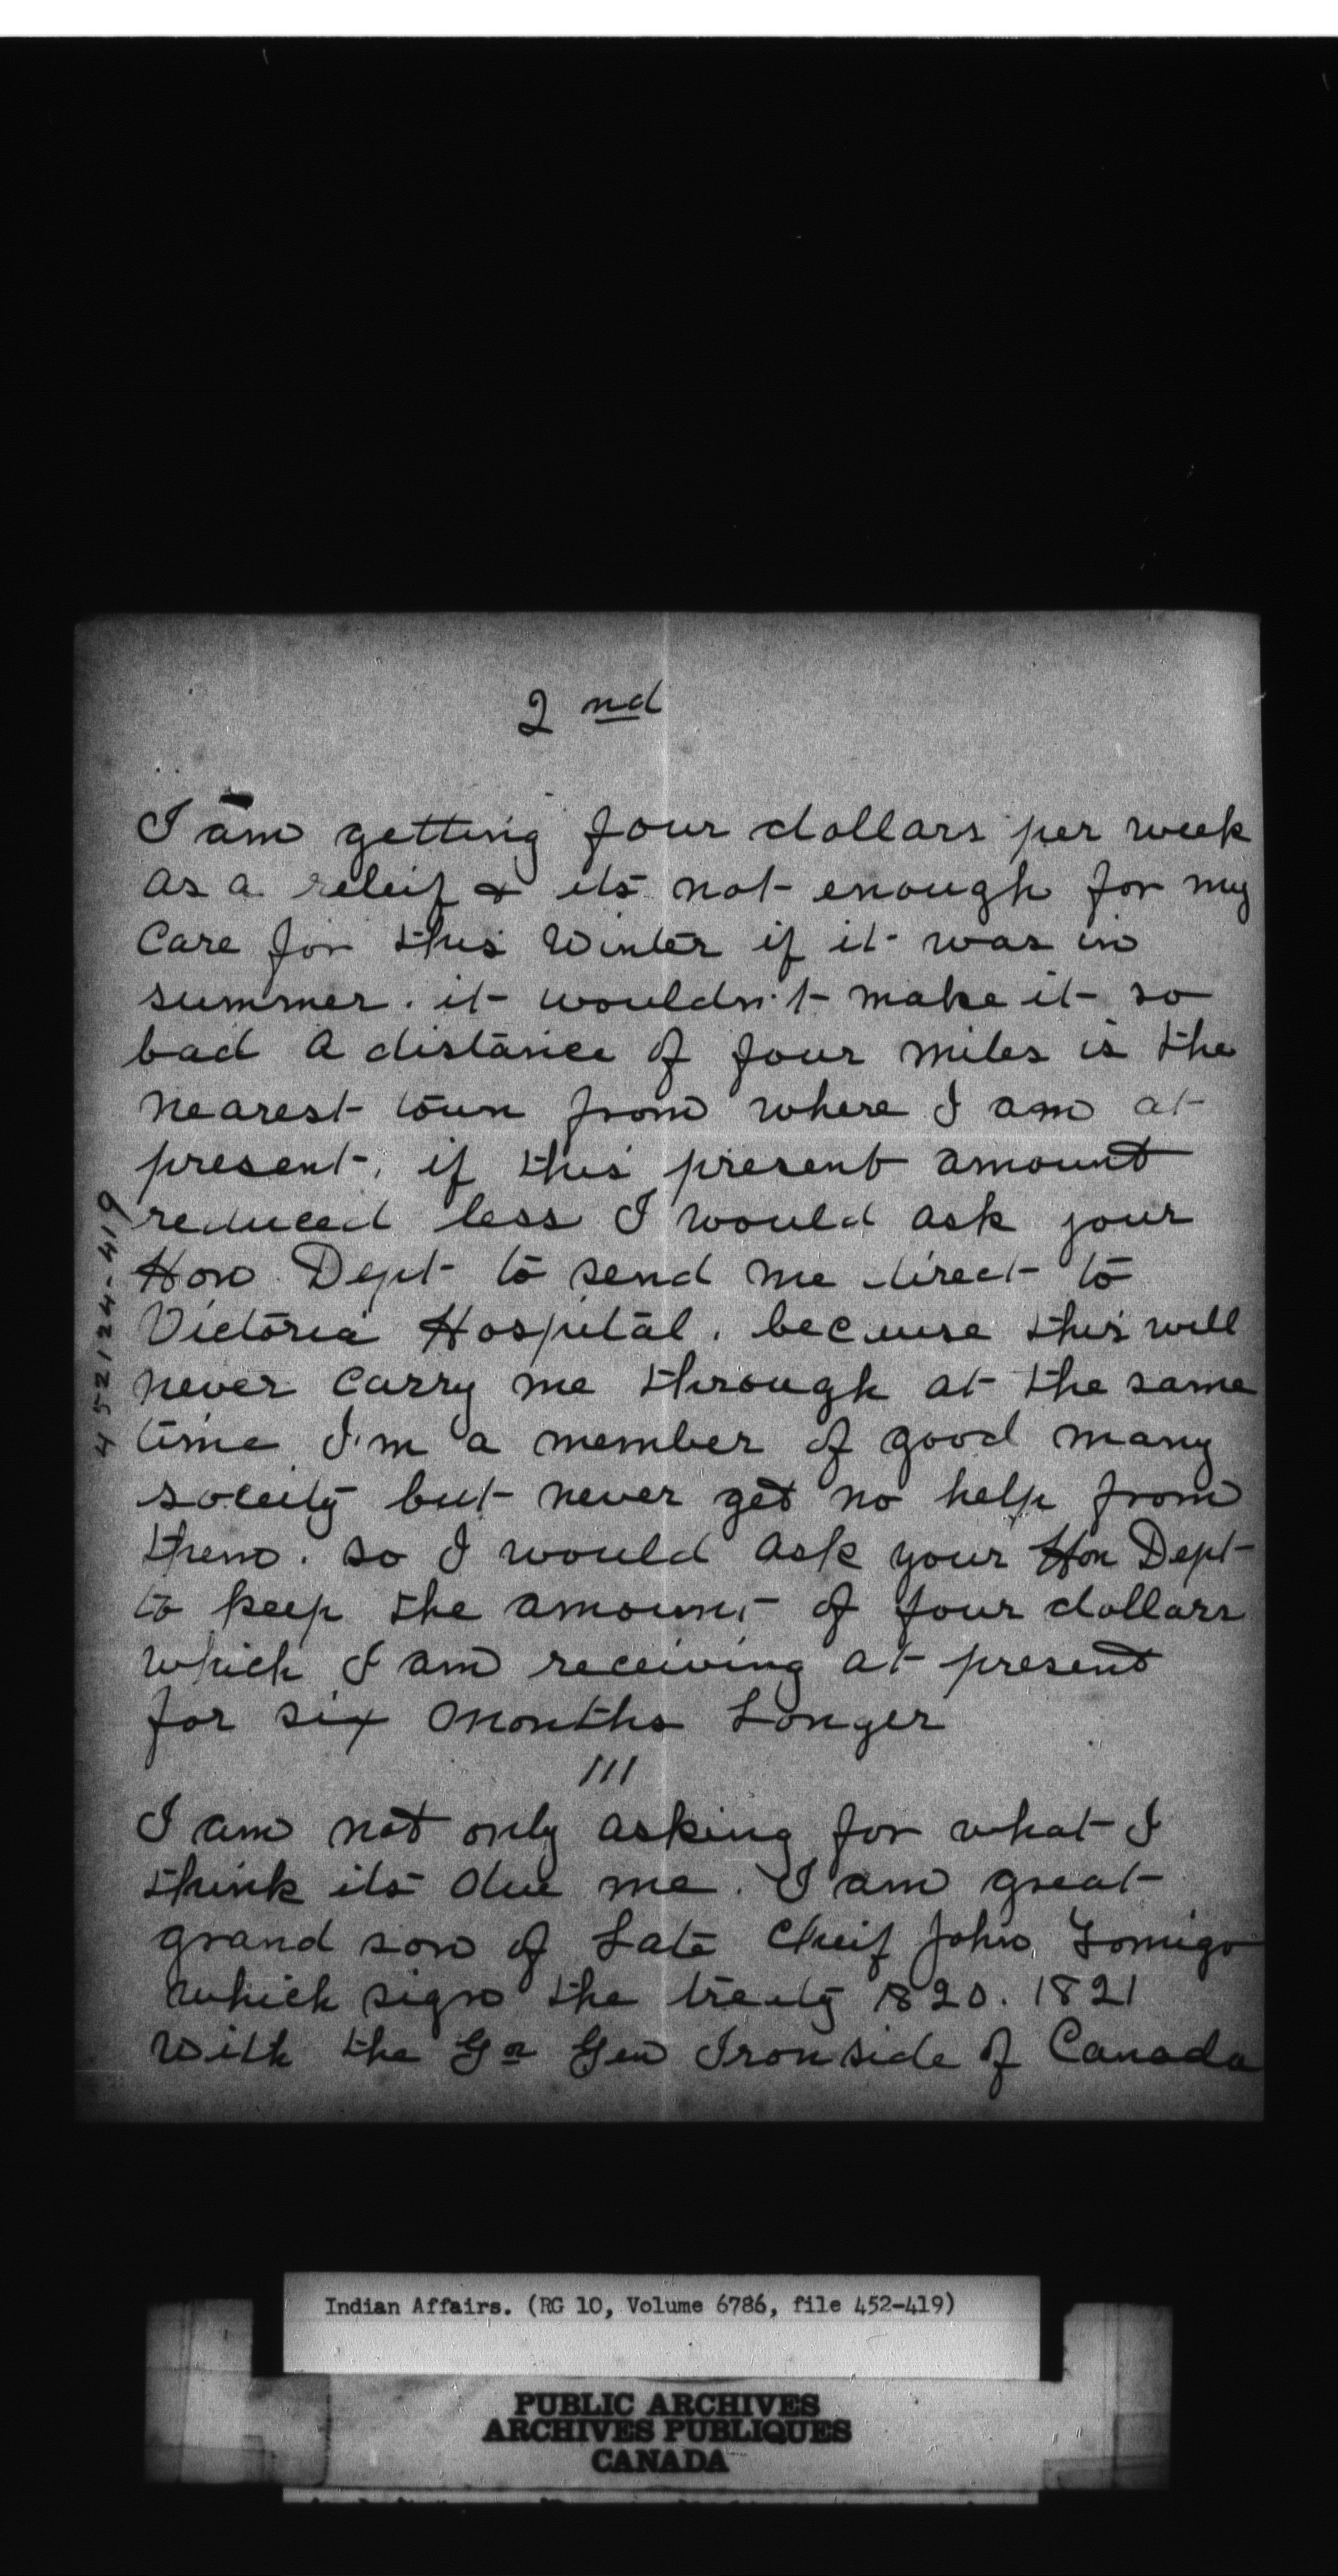 2 nd
I am getting four dollars per week
as a releif & its not enough for my
Care for this Winter if it was in
summer. it wouldn't make it so
bad a distance of four miles is the
nearest town from where I am at
present. if this present amount
reduced less I would ask your
Hon Dept to send me direct to
Victoria Hospital. because this will
never carry me through at the same
time I'm a member of good many
soceity but never get no help from
them. so I would ask your Hon Dept
to keep the amount of four dollars
which I am receiving at present
for six months Longer
111
I am not only asking for what I
think its due me. I am great
grand son of Late Cheif John
which sign the treaty 1820. 1821
with the Gen Ironside of Canada
452124-419
Indian Affairs. (RG 10, Volume 6786, file 452-419)
PUBLIC ARCHIVES
ARCHIVES PUBLIQUES
CANADA